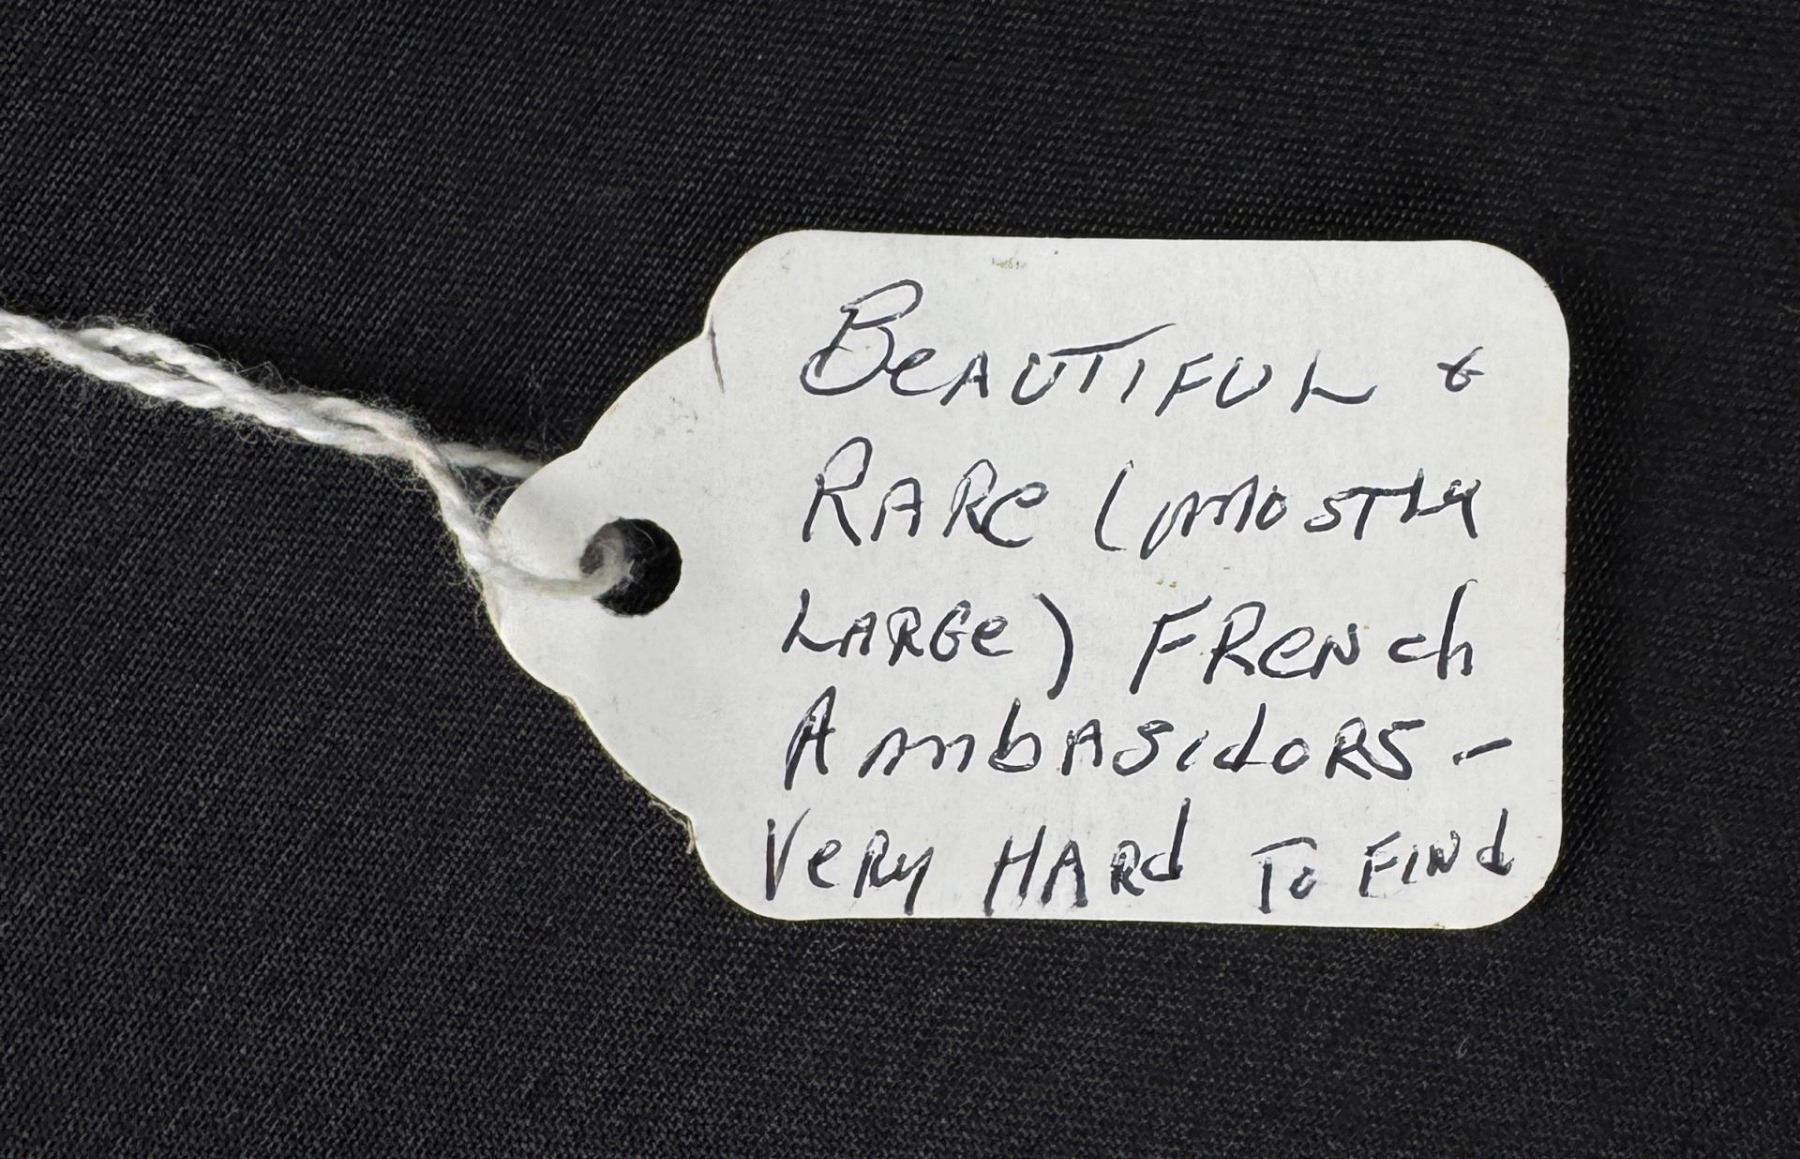 BeAUTIFUL &
RARe (mOSTLY
LARGe) FRench
AmbASidORS -
VeRy HARd To FINd